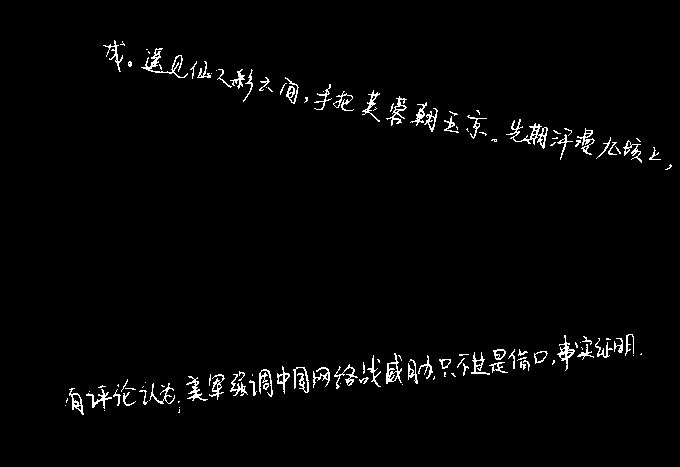 成。遥见仙人彩云间,手把芙蓉朝玉京。先期汗漫九垓上,
有评论认为,美军强调中国网络战威胁只不过是借口,事实证明.